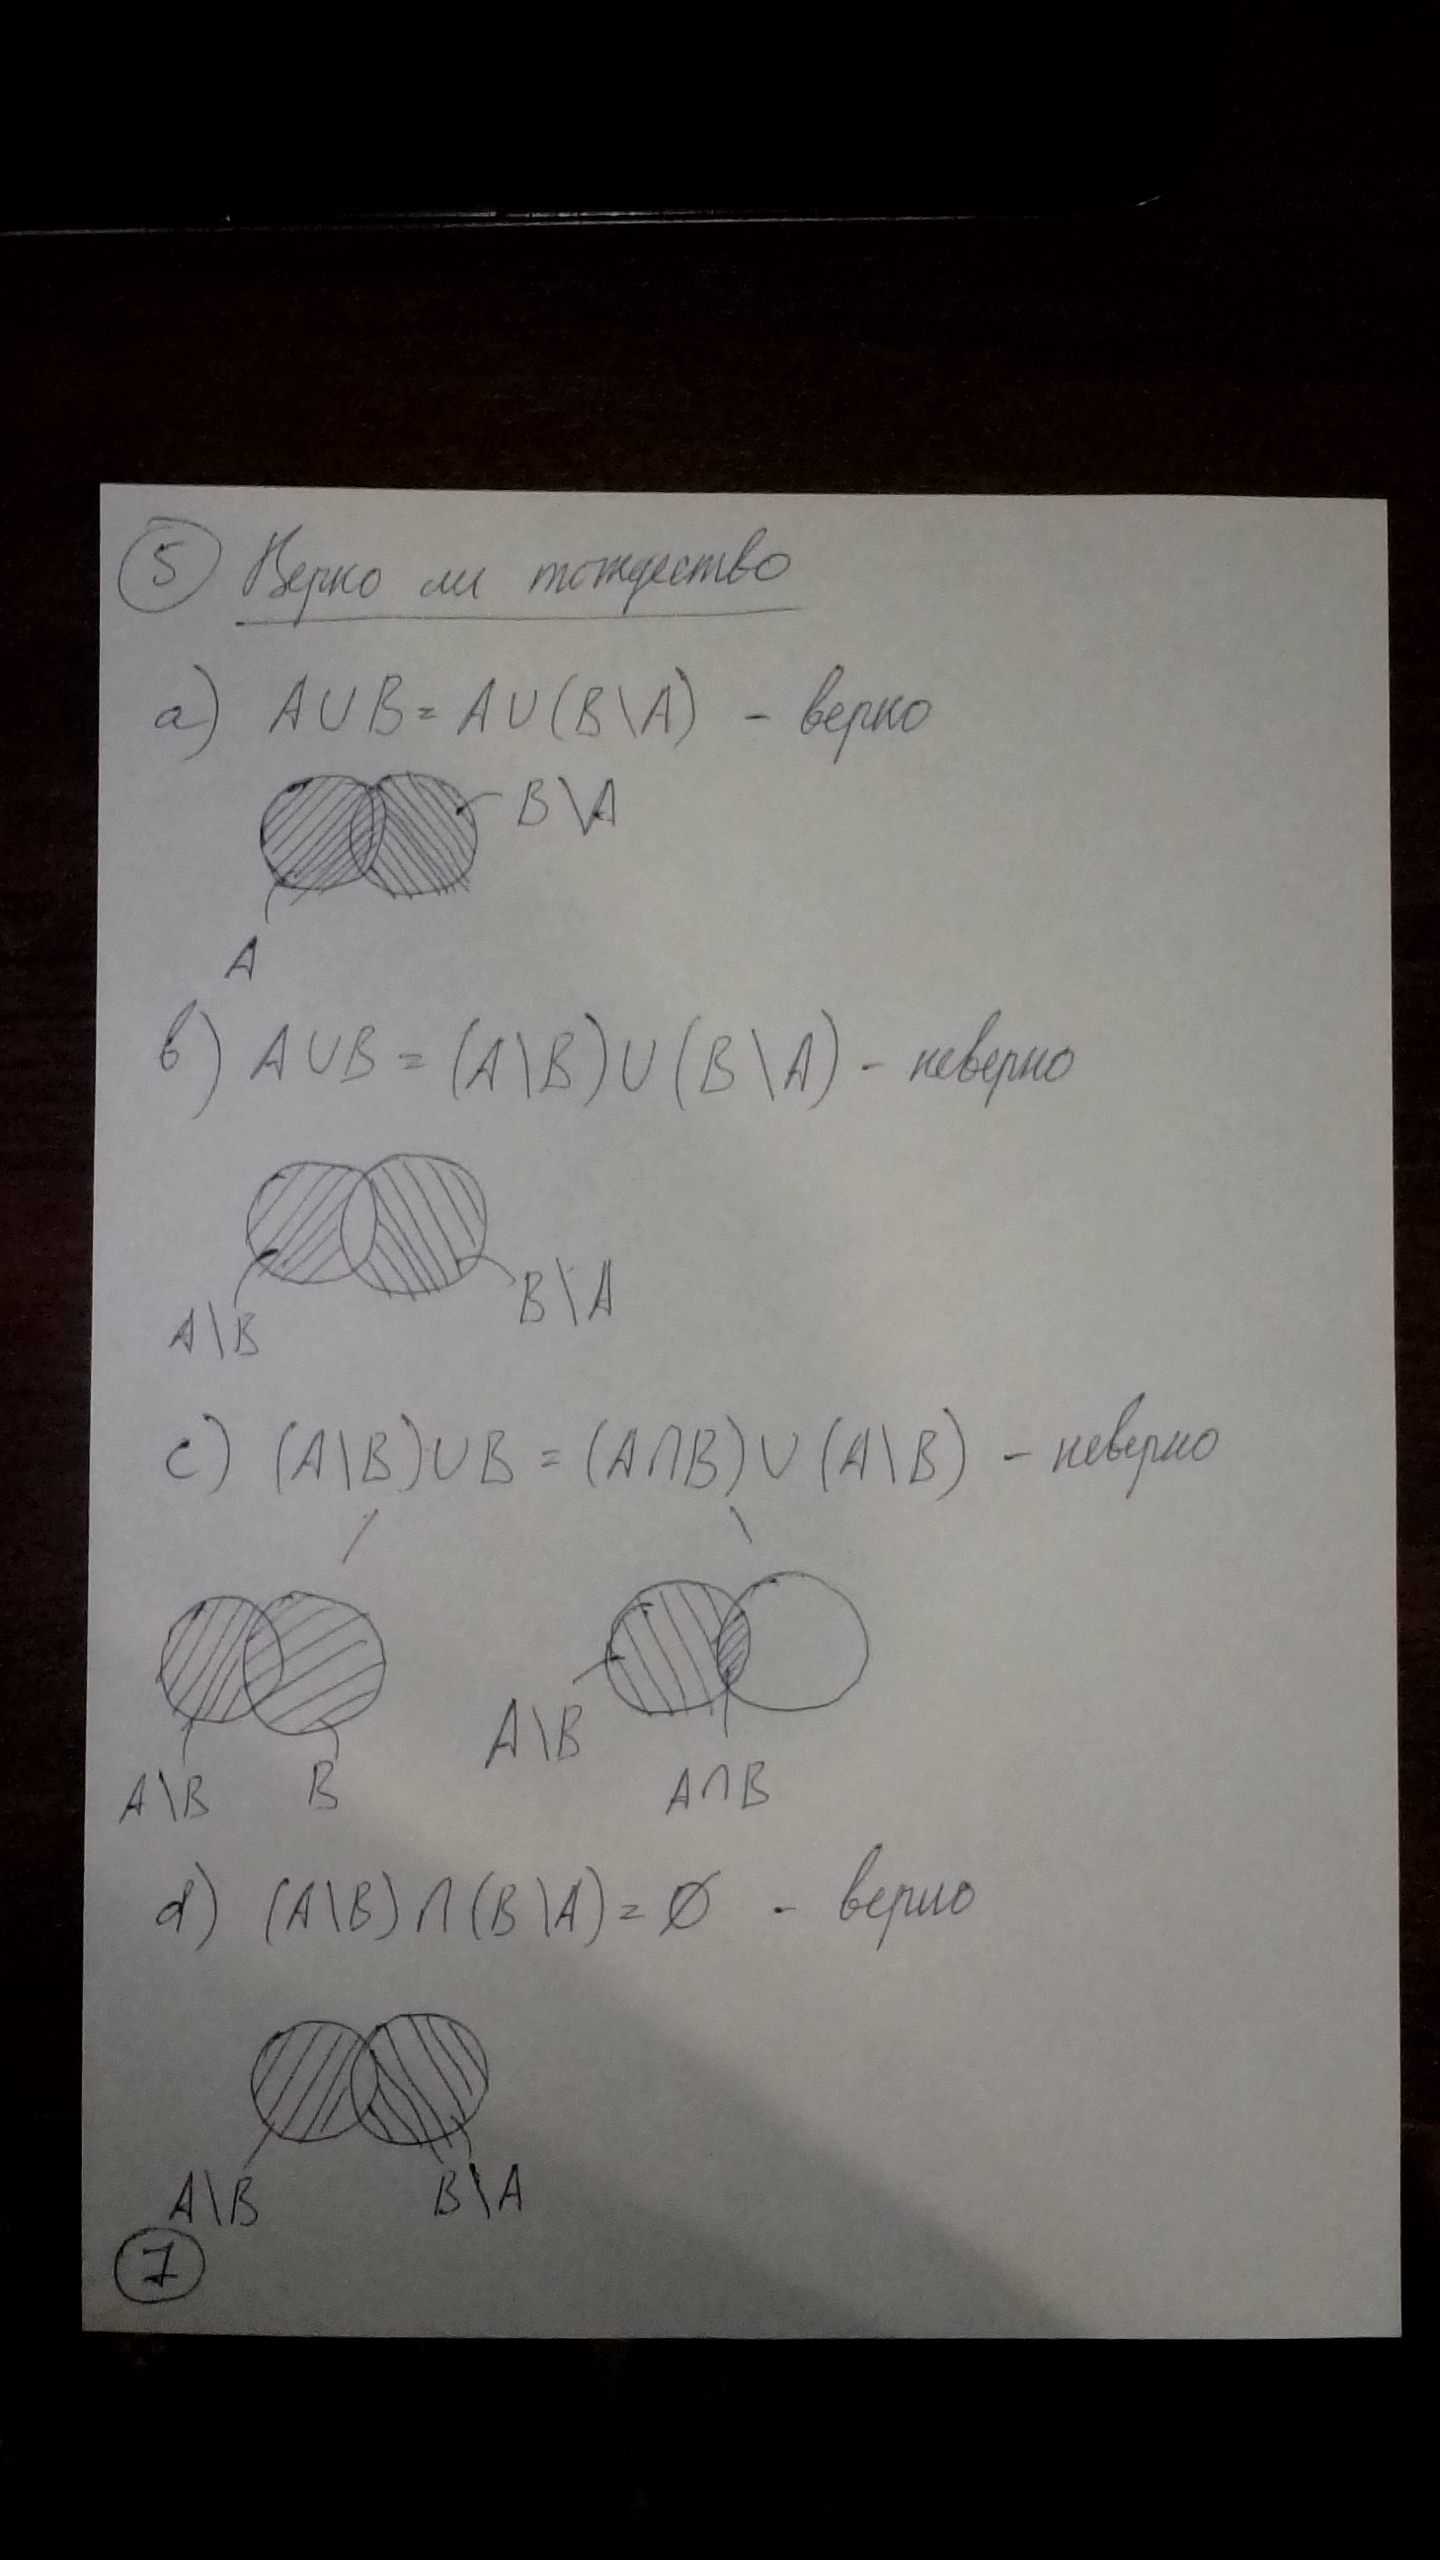 5 Верно ли тождество
a) A∪B = A∪(B\A) - верно
B\A
A
b) A∪B = (A\B)∪(B\A) - неверно
A\B
B\A
c) (A\B)∪B = (A∩B)∪(A\B) - неверно
A\B B A\B A∩B
d) (A\B)∩(B\A) = ∅ - верно
A\B B\A
7